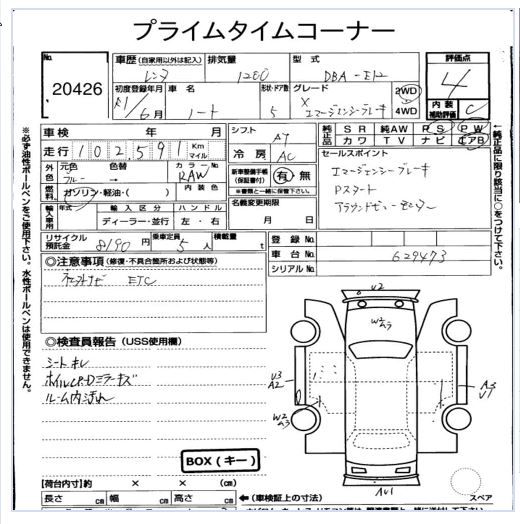 プライムタイムコーナー
No.
20426
車歴 (自家用以外は記入)
レンタ
排気量
1200
型式
DBA-E12
評価点
4
初度登録年月
R1/6月
車名
ノート
形状・ドア数
5
グレード
X
エマージェンシーブレーキ
2WD
4WD
内装補助評価
C
車検 年 月
走行 102,591 Km マイル
シフト
AT
冷房
AC
純正品
SR 純AW PS PW
カワ TV ナビ エアB
外色
元色
ブルー
色替
→
カラーNo.
RAW
内装色
燃料
ガソリン・軽油・( )
新車整備手帳(保証書付)
有 無
※書類と一緒に保管下さい。
セールスポイント
エマージェンシーブレーキ
Pスタート
アラウンドビューモニター
輸入車用
年式
輸入区分
ディーラー・並行
ハンドル
左・右
名義変更期限
月 日
リサイクル預託金
8190円
乗車定員
5人
積載量
t
登録No.
車台No.
629473
シリアルNo.
◎注意事項 (修復・不具合箇所および状態等)
ETC
◎検査員報告 (USS使用欄)
シートキレ
ルーム内汚れ
BOX (キー)
【荷台内寸】約 × × (cm)
長さ cm 幅 cm 高さ cm
← (車検証上の寸法)
V2
W2
A3
V3
A2
W2
A3
A3
V1
AU1
スペア
※必ず油性ボールペンをご使用下さい。水性ボールペンは使用できません。
←純正品に限り該当に○をつけて下さい。